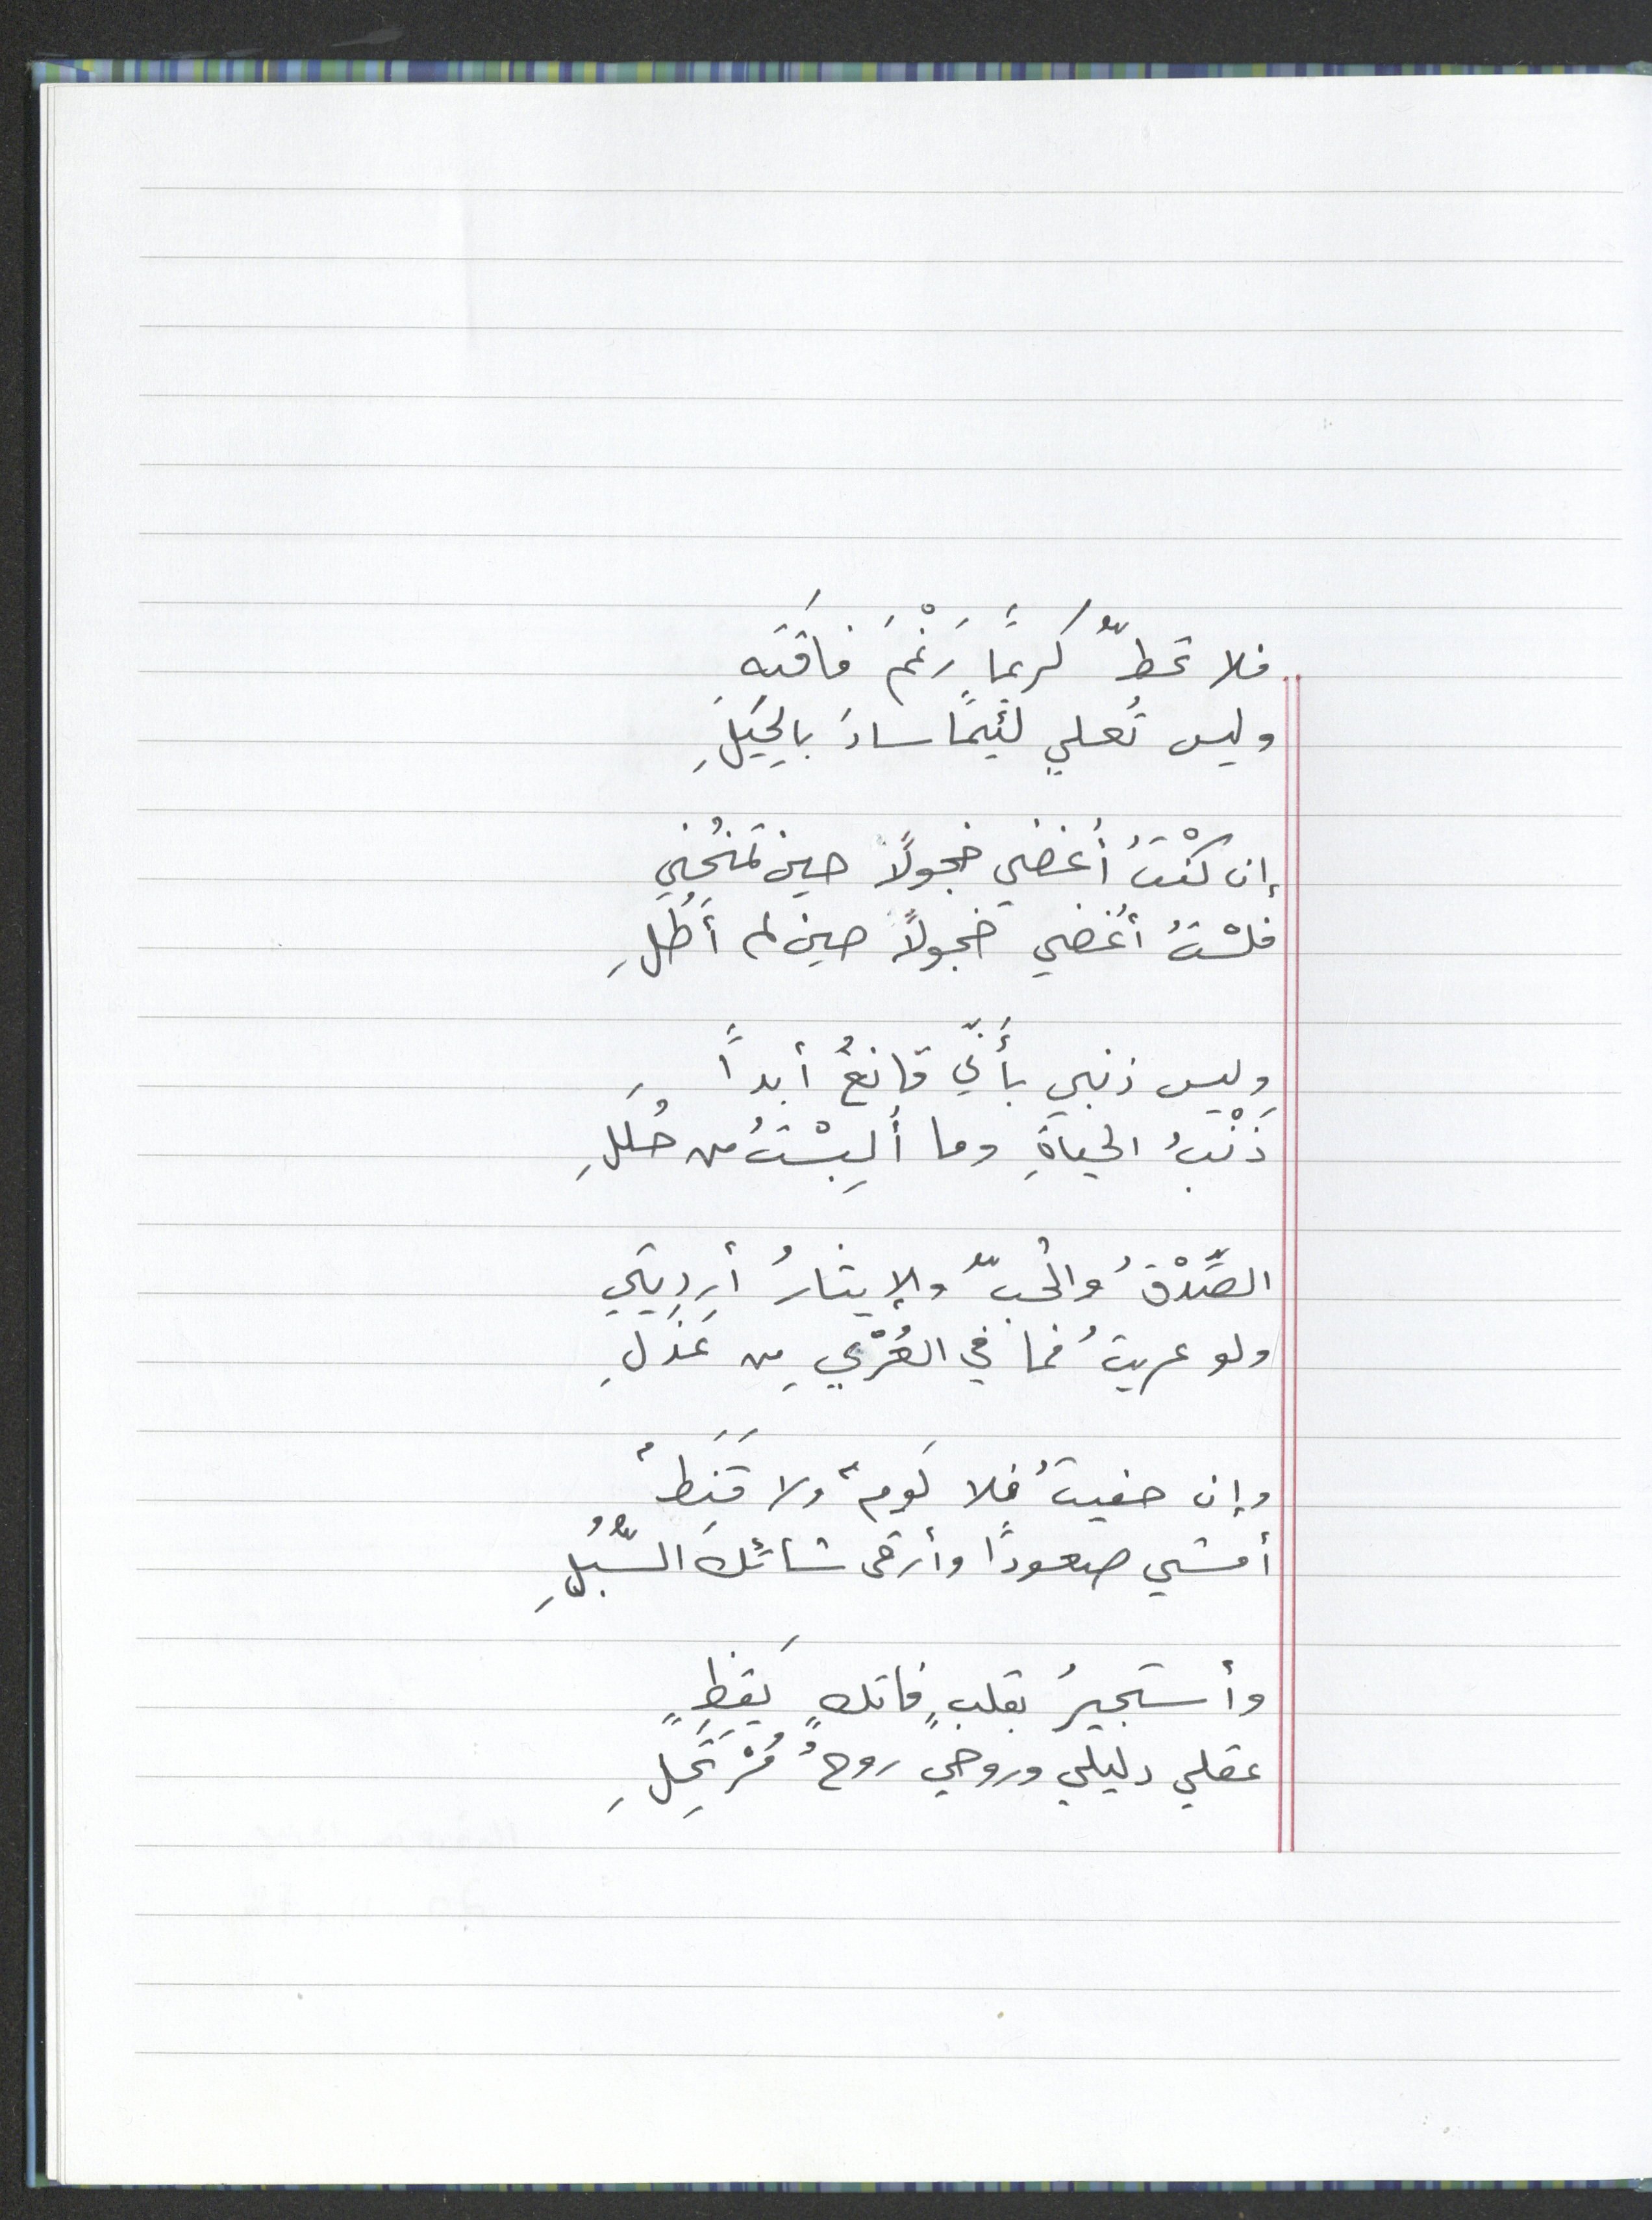 فلا تحطّ كريمًا رَغْمَ فاقَتَه
وليس تُعلي لئيمًا سادَ بالحِيَلِ
إن كنْتُ أُغضي خجولًا حين تمنحُني
فلسْتُ أُغضي خجولًا حين لم أَطُلِ
وليس ذنبي بأَنّي قانعٌ أبداً
ذَنْبُ الحياةِ وما أُلبِسْتُ من حُللِ
الصِّدْقُ والحُبّ والإيثارُ أرديتي
ولو عريتُ فما في العُرْيِ مِن عَذَلِ
وإن حفيتُ فلا لَومٌ ولا قَنَطٌ
أمشي صعودًا وأرقى شائكَ السُّبُلِ
وأستجيرُ بقلبٍ فاتكٍ يَقِظٍ
عقلي دليلي وروحي روحُ مُرْتَحِلِ